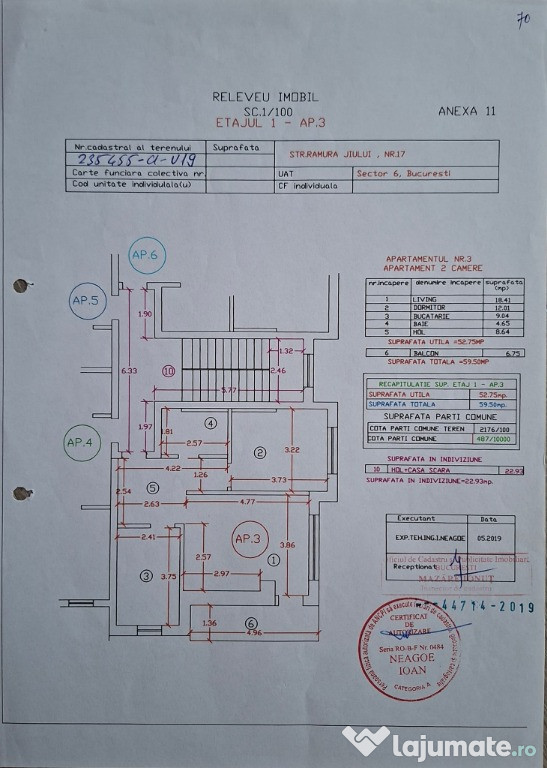 70
RELEVEU IMOBIL
SC.1/100
ETAJUL 1 - AP.3
ANEXA 11
Nr.cadastral al terenului Suprafata
235455-C1-U19
STR.RAMURA JIULUI , NR.17
Carte funciara colectiva nr. UAT Sector 6, Bucuresti
Cod unitate individulala(u) CF individuala
AP.6
AP.5
AP.4
AP.3
1.90
6.33
10
1.32
2.46
5.77
1.97
1.81
4
2.57
2
3.22
4.22
1.26
3.73
5
2.54
2.63
4.77
2.41
2.57
3.86
1
3
3.75
2.97
1.36
6
4.96
APARTAMENTUL NR.3
APARTAMENT 2 CAMERE
nr.incapere denumire incapere suprafata (mp)
1 LIVING 18.41
2 DORMITOR 12.01
3 BUCATARIE 9.04
4 BAIE 4.65
5 HOL 8.64
SUPRAFATA UTILA =52.75MP
6 BALCON 6.75
SUPRAFATA TOTALA =59.50MP
RECAPITULATIE SUP. ETAJ 1 - AP.3
SUPRAFATA UTILA 52.75mp.
SUPRAFATA TOTALA 59.50mp.
SUPRAFATA PARTI COMUNE
COTA PARTI COMUNE TEREN 2176/100
COTA PARTI COMUNE 487/10000
SUPRAFATA IN INDIVIZIUNE
10 HOL+CASA SCARA 22.93
SUPRAFATA IN INDIVIZIUNE=22.93mp.
Executant Data
EXP.TEH.ING.I.NEAGOE 05.2019
Oficiul de Cadastru si Publicitate Imobiliara
BUCURESTI
Receptionat
44714-2019
CERTIFICAT
DE
AUTORIZARE
Seria RO-B-F Nr. 0484
NEAGOE
IOAN
CATEGORIA A
lajumate.ro